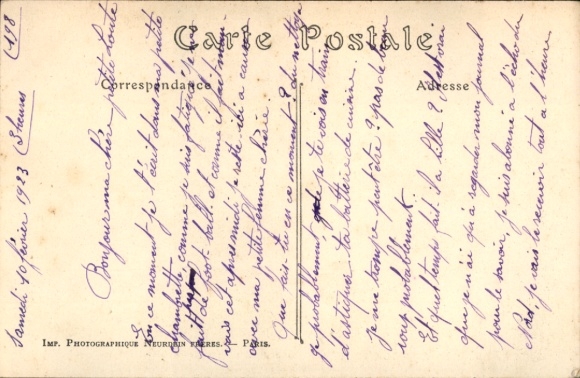 Carte Postale
Correspondance
Adresse
Samedi 10 février 1923 3 heures (198
Bonjour ma chère petite toute
En ce moment je t'écrit dans ma petite
chambrette, comme je suis fatigué de
foot-ball et comme il fait mau-
vais cet après midi je reste ici à causer
avec ma petite femme chérie.
Que fais-tu en ce moment ? du nettoyage
probablement je te vois en train
d'astiquer ta batterie de cuisine
je me trompe peut être ? pas de beau-
coup probablement
Et quel temps fait-il à Lille ? c'est vrai
que je n'ai qu'à regarder mon journal
pour le savoir, je suis abonné à l'écho du
Nord, je vais le recevoir tout à l'heure
Imp. Photographique Neurdein Frères. — Paris.